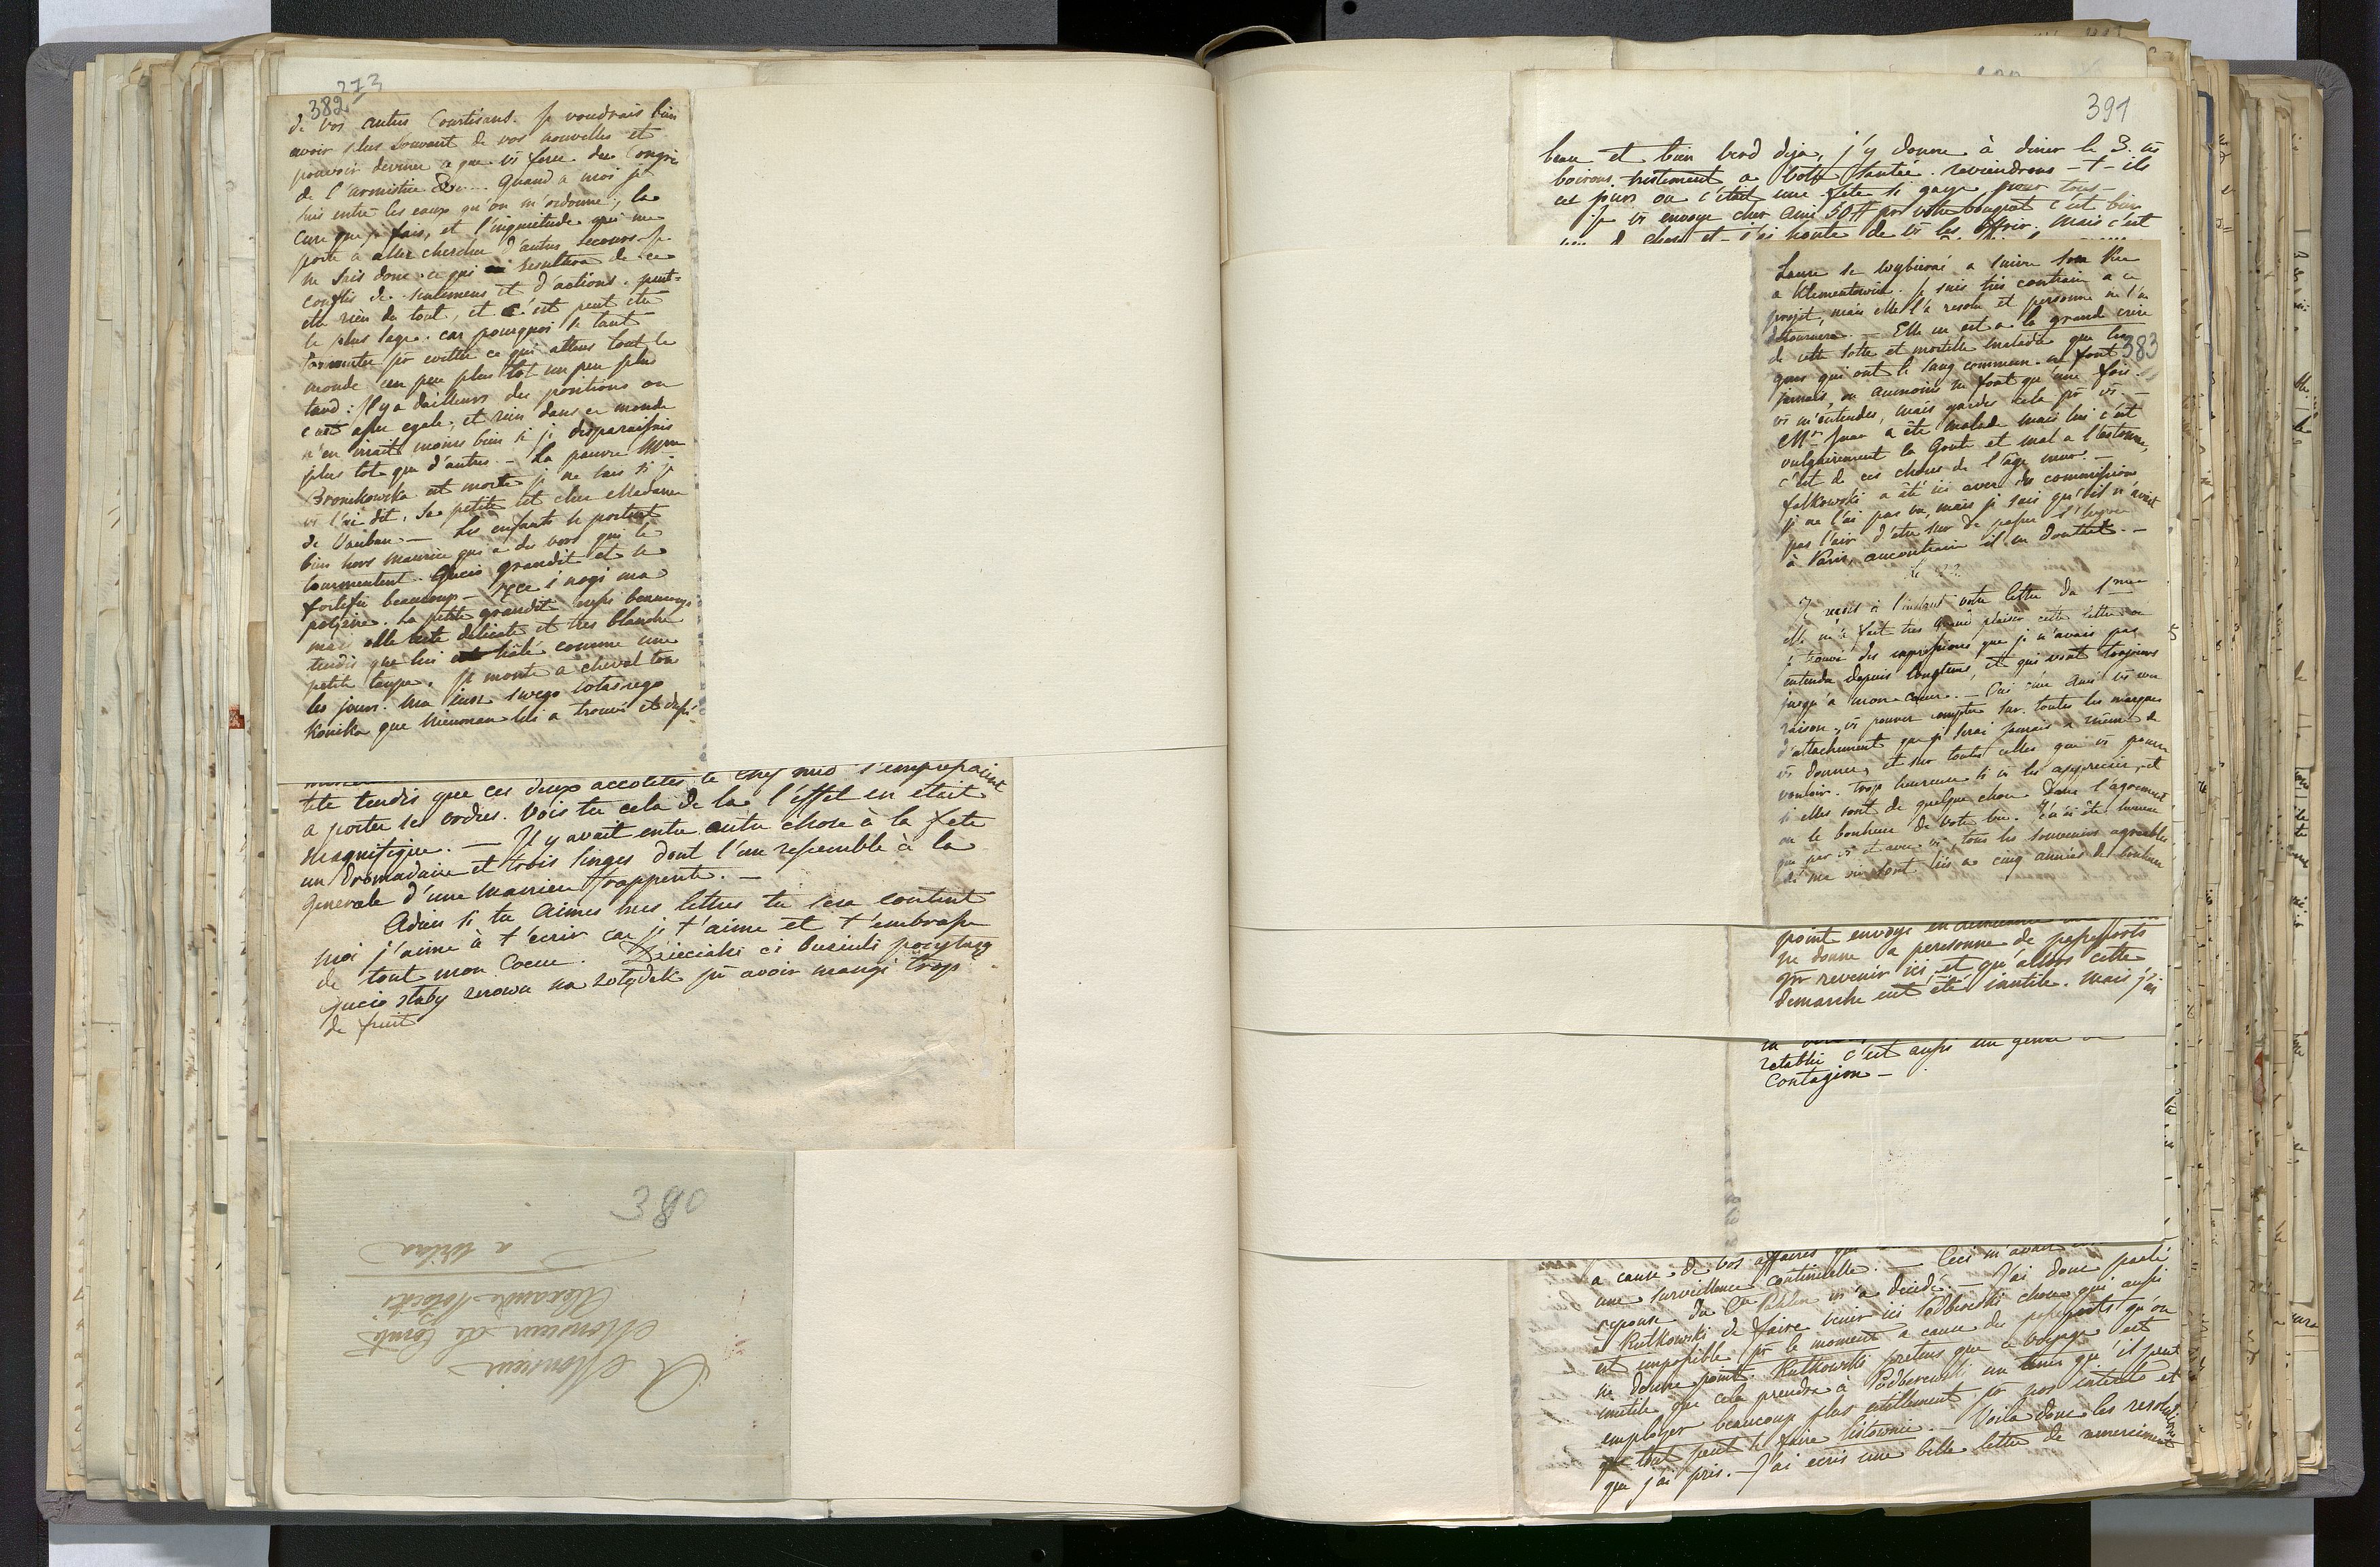 273
382
de vos autres Courtisans. Je voudrais bien
avoir plus souvent de vos nouvelles et
pouvoir deviner a que vs ferez. du Congré
de l'armistice &c... Quand a moi je
suis entre les eaux qu'on m'ordonne, la
cure que je fais, et l'inquietude qui me
porte a aller chercher d'autres secours. Je
ne sais donc ce qui resultera de ce
conflis de sentimens et d'actions. peut-
etre rien du tout, et c'est peut etre
le plus sage. car pourquoi se tant
tormenter pr eviter ce qui attens tout le
monde un peu plus tot un peu plus
tard: Il y a dailleurs des positions ou
c'est assez egale, et rien dans ce monde
n'en irait moins bien si je disparaissais
plus tot que d'autres. - La pauvre Mme
Bronikowska est morte je ne sais si je
vs l'ai dit. Sa petite est chez Madame
de Vauban. - Les enfants se portent
bien hors Maurice qui a des vers qui le
tourmentent. Gucio grandit et se
fortifie beaucoup - ręce i nogi ma
potężne. La petite grandit aussi beaucoup
mais elle reste delicate et tres blanche
tandis que lui est hâlé comme une
petite taupe. Je monte à cheval tous
les jours. Ma iusz swego
Konika que Nieuman lui a trouvé et
tete tendis que ces deux accolites le Chef
a porter ses ordres. Vois tu cela de la l'effet en etait
magnifique. - Il y avait entre autre chose à la fete
un dromadaire et trois singes dont l'un ressemble à la
generale d'une maniere frappente. -
Adieu si tu aimes mes lettres tu sera content
moi j'aime à t'ecrire car je t'aime et t'embrasse
de tout mon Coeur. Dzieciaki ci
Gucio słaby znowu na żołądek pr avoir mangé trop
de fruit
380
A Monsieur
Monsieur le Comte
Alexandre Potocki
a Wilna
391
beau et bien verd deja, j'y donne à diner le 3. ns
boirons tristement a votre santée. reviendrons-t-ils
ces jours ou c'était une fete si gaye pour tous -
Je vs envoye cher Ami 50 # pr votre bouquet c'est bien
peu de chose et j'ai honte de vs les offrir. Mais c'est
Laure se a suivre son
a Klementowice. Je suis très contraire a ce
projet, mais elle l'a resolu et personne ne l'en
detournera. - Elle en est a la grande crise
de cette sotte et mortelle maladie que les
383
gens qui ont le sang commun ne font
jamais, ou aumoins ne font qu'une fois.
vs m'entendez, mais gardez cela pr vs. -
Mr a été malade mais lui c'est
vulgairement la Goute et mal a l'estomac,
c'est de ces choses de l'âge mur. -
Falkowski a été ici avec vos commissions
je ne l'ai pas vu, mais je sais qu'il n'avait
pas l'air d'etre sur de passer l'hyver
à Paris, aucontraire il en doutait. -
Je reçois à l'instant votre lettre du 1
elle m'a fait tres grand plaisir cette lettre ou
je trouve des expressions que je n'avais pas
entendu depuis longtems, et qui vont toujours
jusqu'a mon coeur. - Oui cher Ami vs avez
raison, vs pouvez compter sur toutes les marques
d'attachement que je serai jamais a même de
vs donner, et sur toutes celles que vs pourrez
vouloir. trop heureuse si vs les appreciez, et
si elles sont de quelque chose dans l'agrement
ou le bonheur de votre vie. J'ai été heureuse
que par vs et avec vs, tous les souvenirs agreables
de ma vie sont liés a cinq années de bonheur
point envoyé en
ne donne a personne de passeports
pr revenir ici, et qu'allors cette
demarche eut été inutile. Mais j'ai
retablie c'est aussi un genre de
Contagion -
a cause de vos affaires qui
une surveillence continuelle. - Ceci m'avait
reponse du Cte Pahlen vs a decidé. - J'ai donc parlé
a Rutkowski de faire venir ici Podbereski chose qui aussi
est impossible pr le moment a cause des passeports qu'on
ne donne point. Rutkowski pretens que ce voyage est
inutile que cela prendra à Podbereski un tems qu'il peut
employer beaucoup plus utillement pr nos interets et
que tout peut se faire listownie. - Voila donc les resolutions
que j'ai pris. - J'ai ecris une belle lettre de remerciment